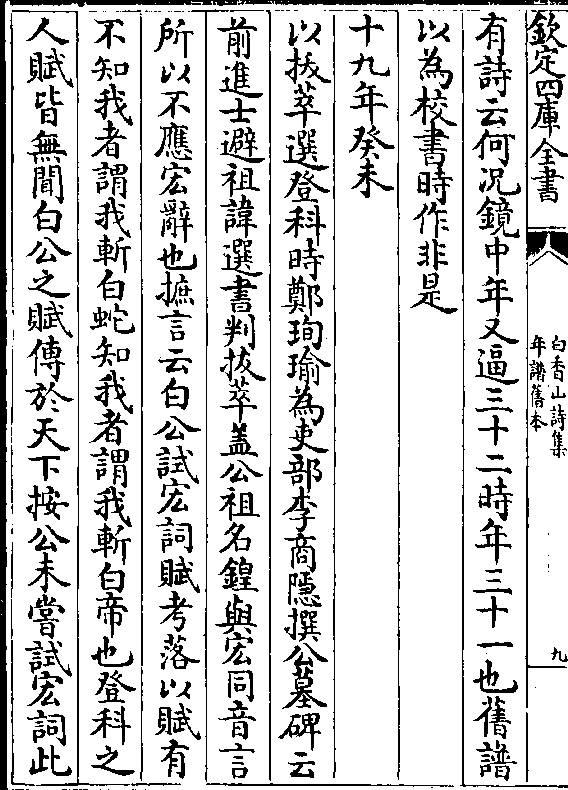 欽定四庫全書
白香山詩集
年譜舊本
九
有詩云何况鏡中年又逼三十二時年三十一也舊譜
以為校書時作非是
十九年癸未
以拔萃選登科時鄭珣瑜為吏部李商隱撰公墓碑云
前進士避祖諱選書判拔萃盖公祖名鍠與宏同音言
所以不應宏辭也摭言云白公試宏詞賦考落以賦有
不知我者謂我斬白蛇知我者謂我斬白帝也登科之
人賦皆無聞白公之賦傳於天下按公未嘗試宏詞此